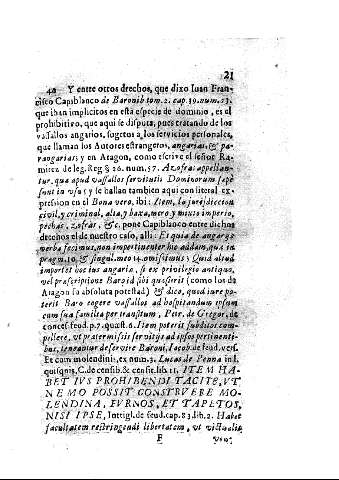 21
40 Y entre otros drechos, que dixo Iuan Fran-
cisco Capiblanco de Baronib. tom. 2. cap. 39. num. 23.
que iban implicitos en esta especie de dominio, es el
prohibitivo, que aqui se disputa, pues tratando de los
vassallos angarios, sugetos a los servicios personales,
que llaman los Autores estrangeros, angarias, & pa-
rangarias; y en Aragon, como escrive el señor Ra-
mirez de leg. Reg § 26. num. 57. Azofras appellan-
tur, quæ apud vassallos servitutis Dominorum sæpe
sunt in usu; y se hallan tambien aqui con literal ex-
presion en el Bona vero, ibi: Item, la jurisdiccion
civil, y criminal, alta, y baxa, mero, y mixto imperio,
pechas, azofras, &c. pone Capiblanco entre dichos
drechos el de nuestro caso, alli: Et quia de angarijs
verba fecimus, non impertinenter hic addam, quæ in
pragm. 10. & singul. meo 14. novissimus; Quid aliud
importet vox ius angaria, si ex privilegio antiquo,
vel præscriptione Baro id sibi quæsierit (como los de
Aragon su absoluta potestad) & dico, quod iure po-
terit Baro cogere vassallos ad hospitandum ipsum
cum sua familia per transitum, Petr. de Gregor. de
conces. feud. p. 7. quæst. 6. Item poterit subditos com-
pellere, ut prætermissis servitijs ad ipsos pertinenti-
bus, teneantur deservire Baroni, Iacob. de feud. vers.
Et cum molendini, ex num. 3. Lucas de Penna in l.
quisquis, C. de censib. & censit. lib. 11. ITEM HA-
BET IVS PROHIBENDI TACITE, VT
NEMO POSSIT CONSTRVERE MO-
LENDINA, FVRNOS, ET TAPETOS,
NISI IPSE, Intrigl. de feud. cap. 83. lib. 2. Habet
facultatem restringendi libertatem, ut victualia
F